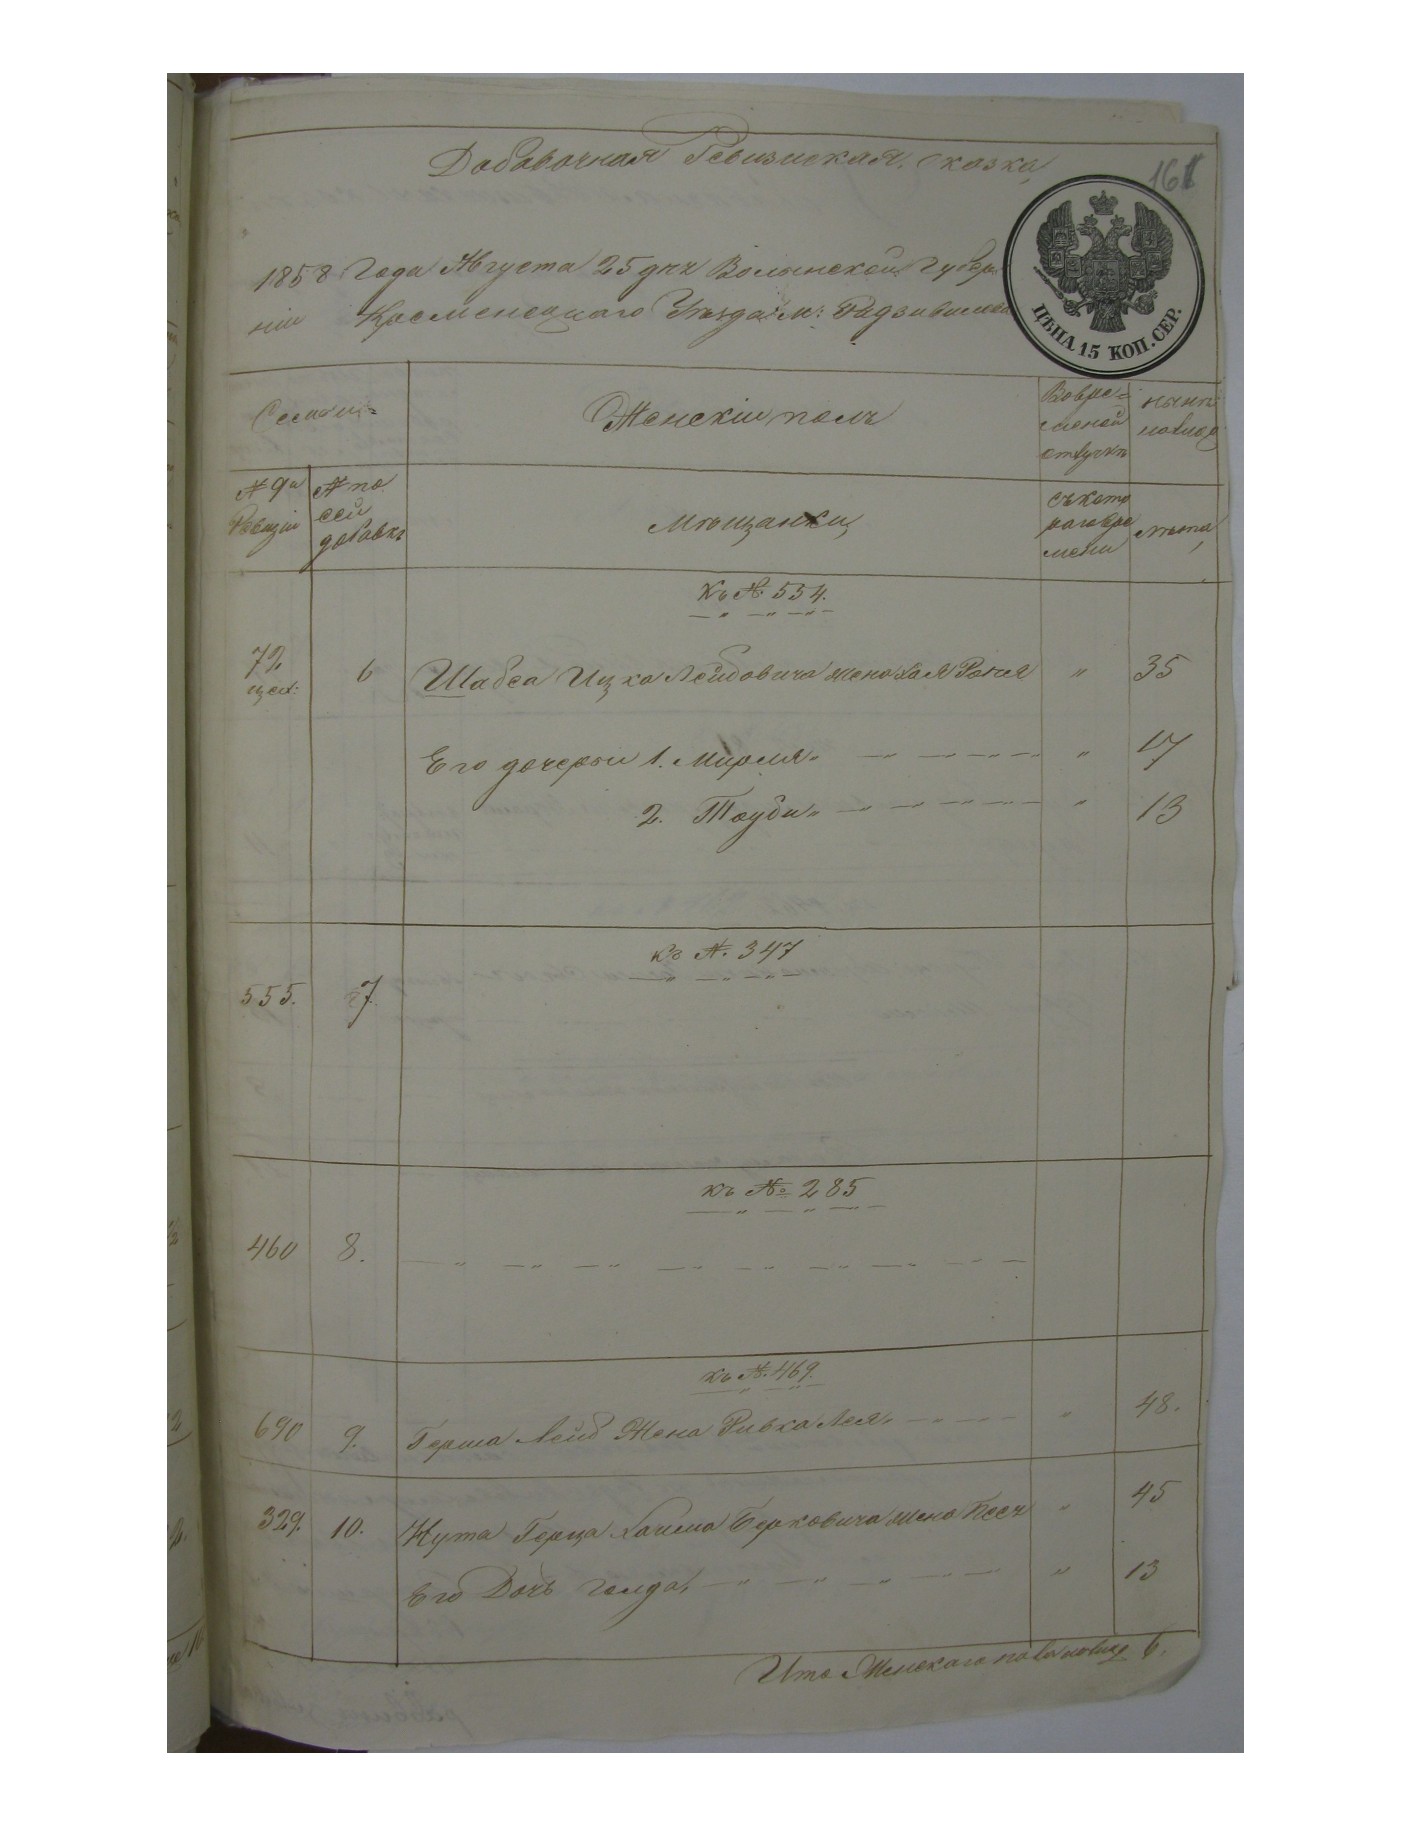 Добавочная Ревизиская сказка
161
1858 Года Августа 25 дня Волынской Губер
ніи Кременецкаго Уезда: М: Радзивилова
ЦѢНА 15 КОП. СЕР.
Семьи
Женскій полъ
Вовре=
меной
отлучкѣ
нынѣ
налицо
№ 9й
Ревизіи
№ по
сей
добавкѣ
Мѣщанки
съ кото
раго вре
мени
лѣта
Къ № 534.
72
6
Шабса Ицка Лейбовича жена Хая Рахля
„
35
Его дочерьи 1. Мирля „
„
17
2. Тауби „
„
13
къ №. 347
555.
7.
къ № 285
460
8.
къ №. 469.
690
9.
Герша Лейб Жена Ривка Лея „
„
48.
329.
10.
Нута Герца Хаима Берковича жена Песя
„
45
Его Дочь Голда,
„
13
Ито Женскаго пола налицо 6.